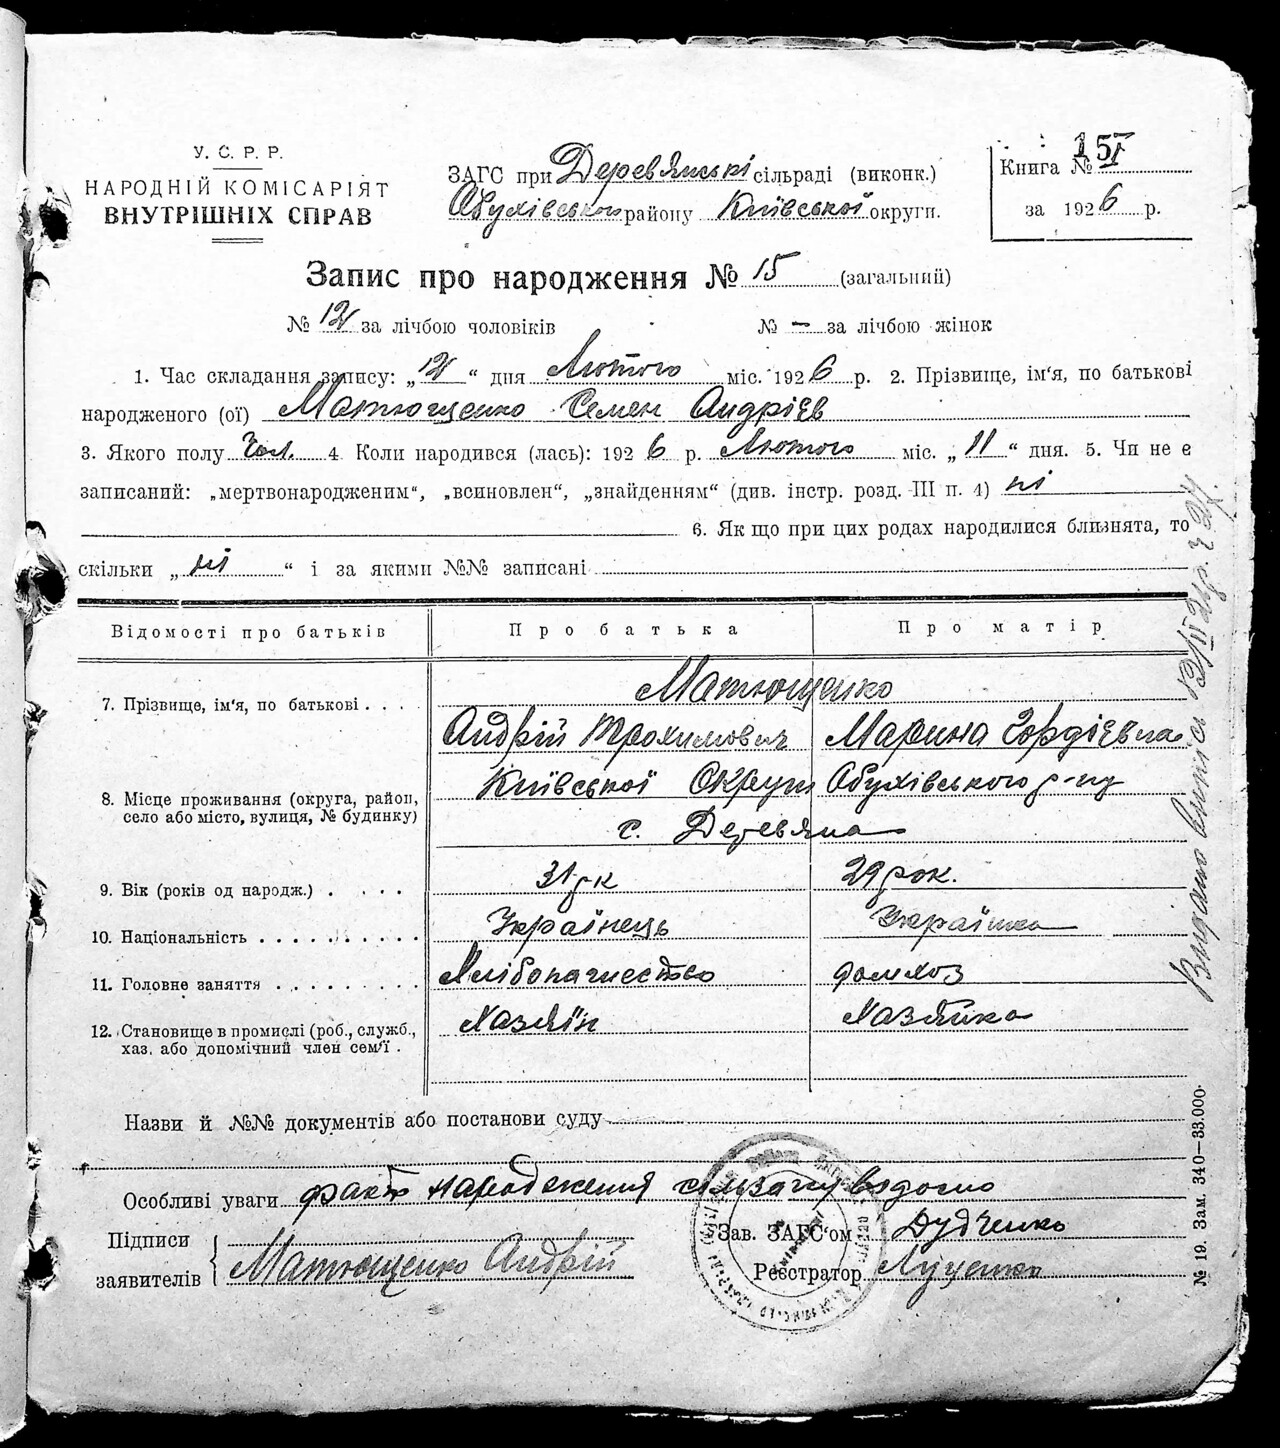 У. С. Р. Р.
НАРОДНІЙ КОМІСАРІЯТ
ВНУТРІШНІХ СПРАВ
ЗАГС при Деревянські сільраді (виконк.)
Обухівського району Київської округи.
Книга № 15
за 1926 р.
Запис про народження № 15 (загальний)
№ 12 за лічбою чоловіків № — за лічбою жінок
1. Час складання запису: „12“ дня Лютого міс. 1926 р. 2. Прізвище, ім'я, по батькові
народженого (ої) Матющенко Семен Андрієв
3. Якого полу Чол. 4 Коли народився (лась): 1926 р. Лютого міс. „11“ дня. 5. Чи не є
записаний: „мертвонародженим“, „всиновлен“, „знайденням“ (див. інстр. розд. III п. 4) ні
6. Як що при цих родах народилися близнята, то
скільки „ні“ і за якими №№ записані
Відомості про батьків Про батька Про матір
Матющенко
7. Прізвище, ім'я, по батькові . . . .
Андрій Трохимович Марина Гордієвна
Київської Округи Обухівського р-ну
8. Місце проживання (округа, район,
село або місто, вулиця, № будинку)
с. Деревяна
9. Вік (років од народж.) . . . . 31 рк 29 рок.
10. Національність . . . . . . . . . . Українець Українка
11. Головне заняття . . . . . . . . . Хлібопашество домхоз
12. Становище в промислі (роб., служб., Хазяїн Хазяйка
хаз. або допомічний член сем'ї .
Назви й №№ документів або постанови суду
Особливі уваги факт народження сільраду відомо
Підписи
заявителів Матющенко Андрій
Зав. ЗАГС'ом Дудченко
Реєстратор Луценко
№ 19. Зам. 340—33.000.
Видано випись